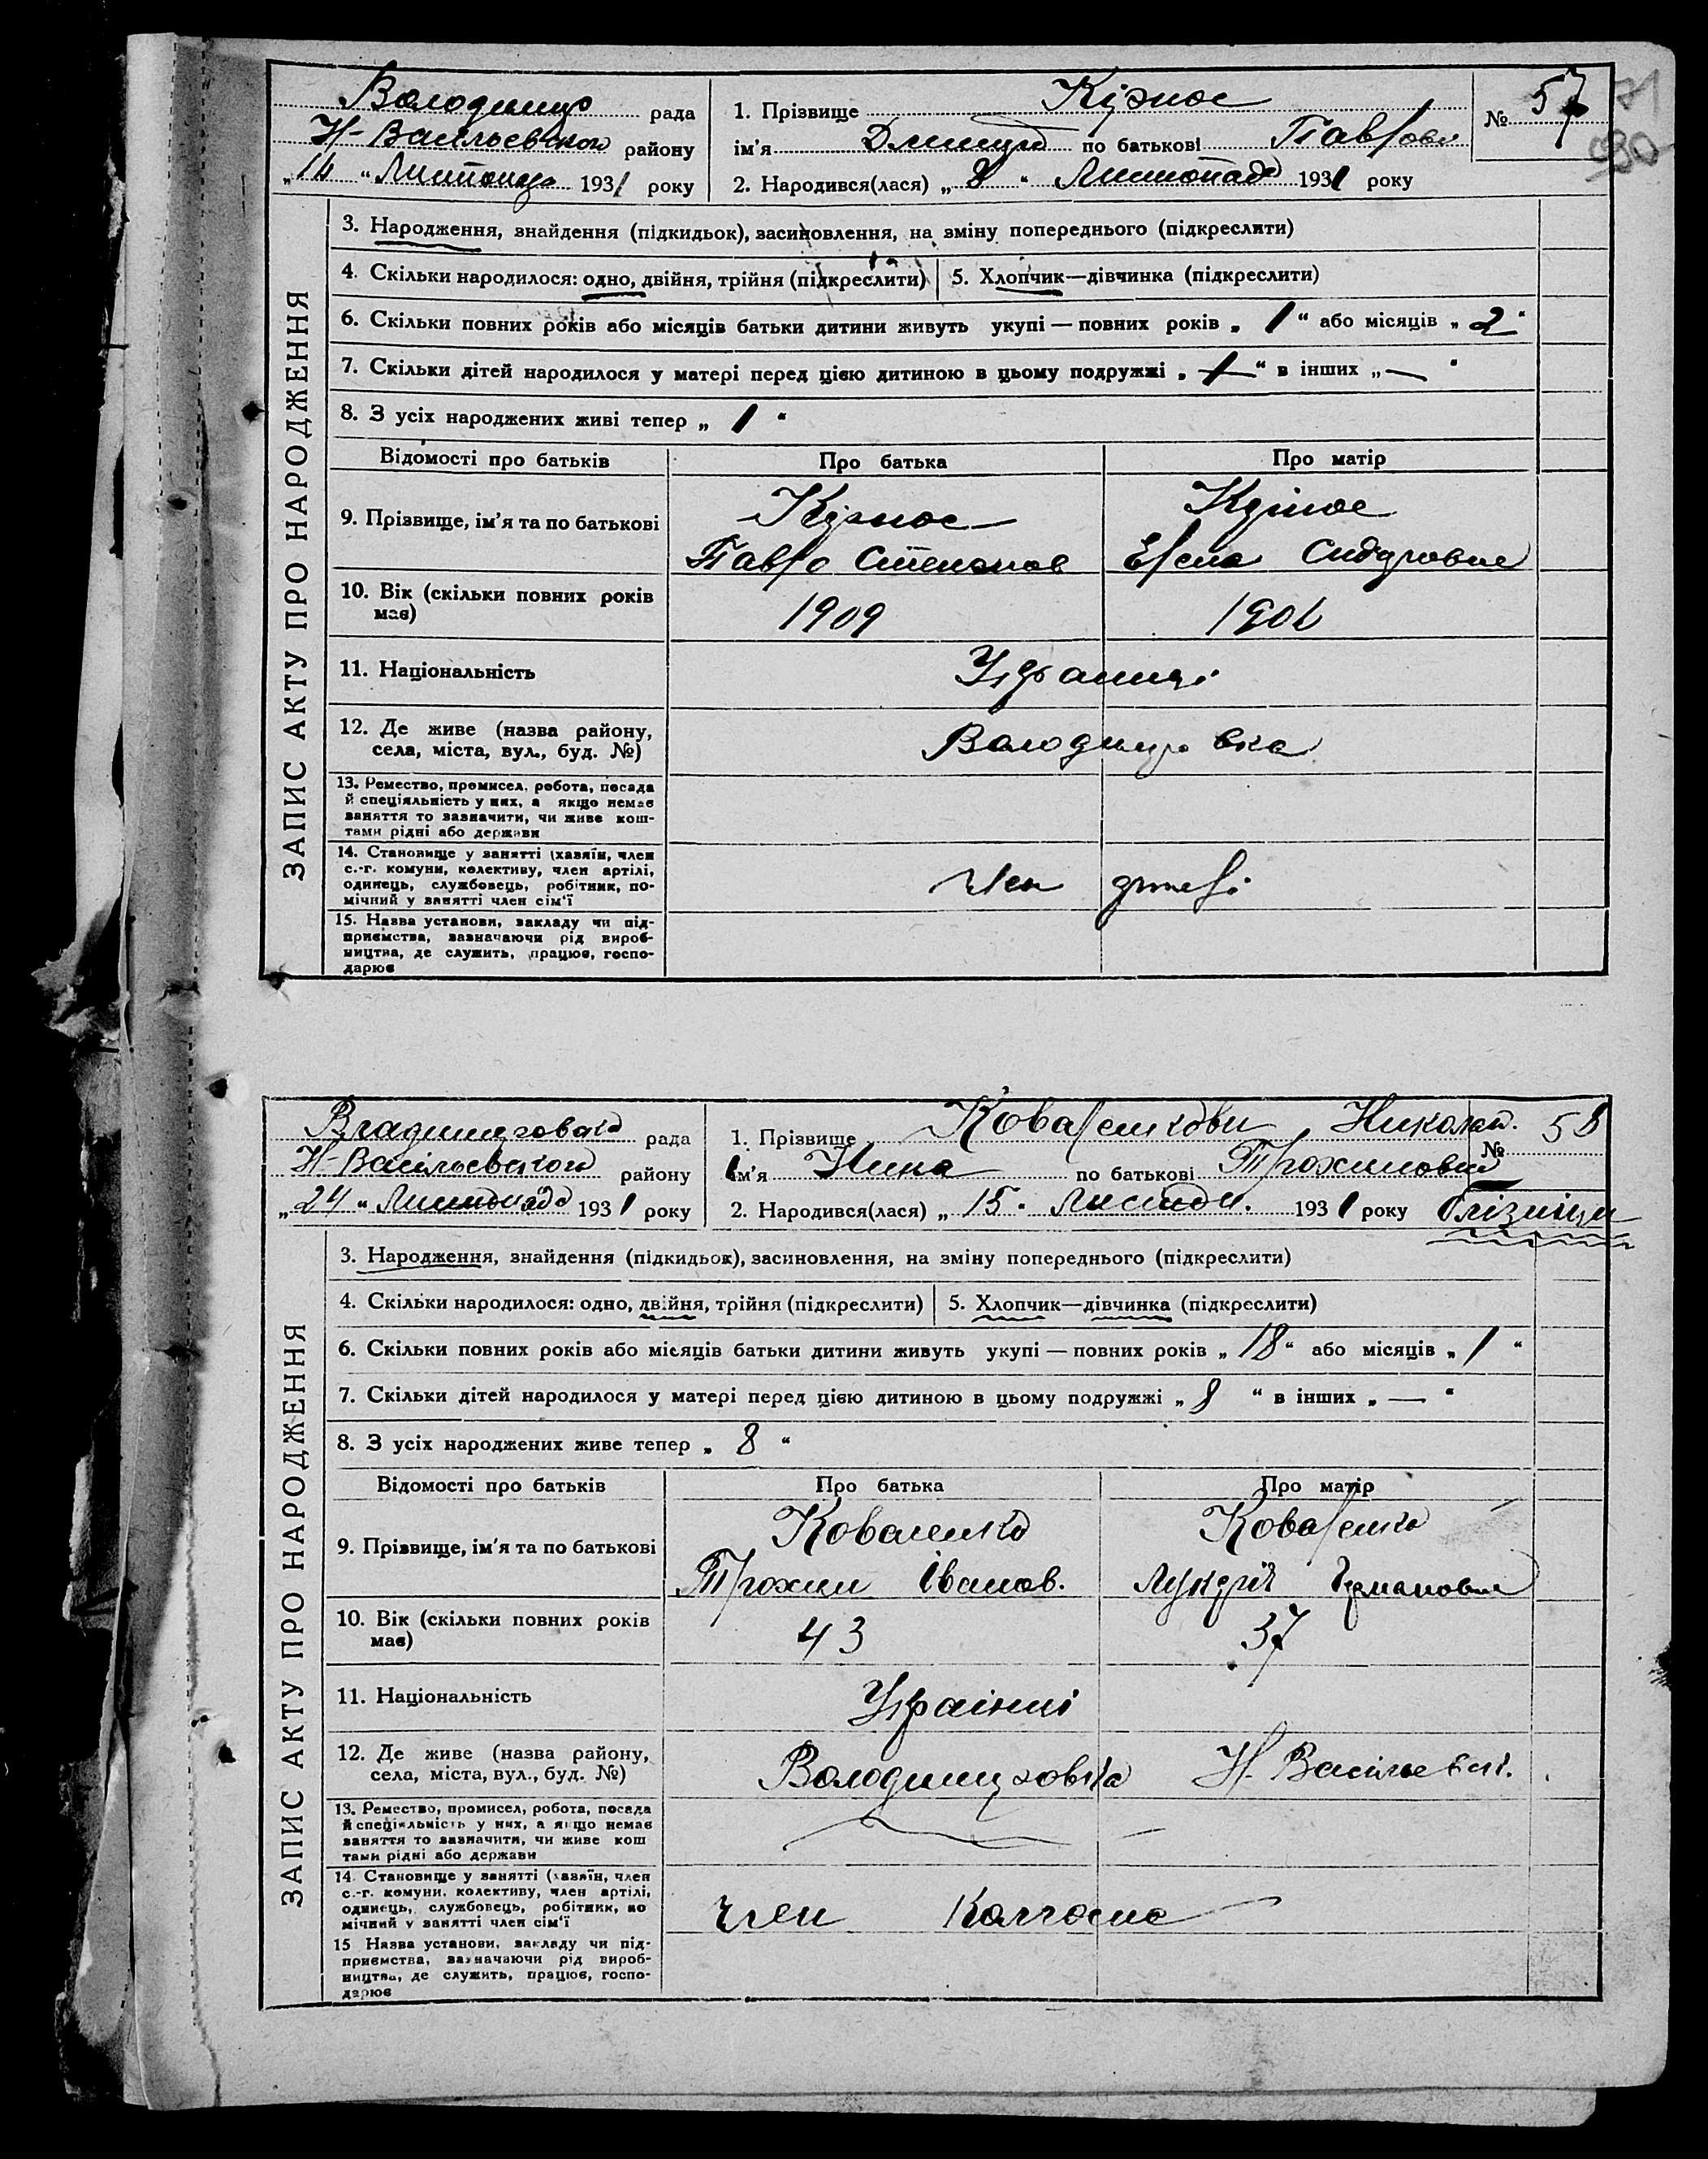 рада
Н-Васильевског району
Листопада 1931 року
1. Прізвище
№ 57
ім'я по батькові
2. Народився(лася) „ 8 “ Листопад 1931 року
ЗАПИС АКТУ ПРО НАРОДЖЕННЯ
3. Народження, знайдення (підкидьок), засиновлення, на зміну попереднього (підкреслити)
4. Скільки народилося: одно, двійня, трійня (підкреслити)
5. Хлопчик—дівчинка (підкреслити)
6. Скільки повних років або місяців батьки дитини живуть укупі — повних років „ 1 “ або місяців „ 2 “
7. Скільки дітей народилося у матері перед цією дитиною в цьому подружжі „ “ в інших „ — “
8. З усіх народжених живі тепер „ 1 “
Відомості про батьків Про батька Про матір
9. Прізвище, ім'я та по батькові
Павло Степанов Елена Сидоровна
10. Вік (скільки повних років має)
1909
11. Національність
12. Де живе (назва району,
села, міста, вул., буд. №)
Володимировка
13. Ремество, промисел, робота, посада
й спеціяльність у них, а якщо немає
заняття то зазначити, чи живе кош-
тами рідні або держави
14. Становище у занятті (хазяїн, член
с.-г. комуни, колективу, член артілі,
одинець, службовець, робітник, по-
мічний у занятті член сім'ї
член артелі
15. Назва установи, закладу чи під-
приємства, зазначаючи рід вироб-
ництва, де служить, працює, госпо-
дарює
Владимировська рада
Н-Васильевского району
„ 24 “ Листопада 1931 року
1. Прізвище Коваленкови Николай.
№ 58
Ім'я Нина по батькові Трохимовна
2. Народився(лася) „ 15 “ 1931 року
близнци
ЗАПИС АКТУ ПРО НАРОДЖЕННЯ
3. Народження, знайдення (підкидьок), засиновлення, на зміну попереднього (підкреслити)
4. Скільки народилося: одно, двійня, трійня (підкреслити)
5. Хлопчик—дівчинка (підкреслити)
6. Скільки повних років або місяців батьки дитини живуть укупі — повних років „ 18 “ або місяців „ 1 “
7. Скільки дітей народилося у матері перед цією дитиною в цьому подружжі „ 8 “ в інших „ — “
8. З усіх народжених живе тепер „ 8 “
Відомості про батьків Про батька Про матір
9. Прізвище, ім'я та по батькові
Коваленко Коваленко
Трохим Іванов.
10. Вік (скільки повних років має)
43 37
11. Національність
Українці
12. Де живе (назва району,
села, міста, вул., буд. №)
Володимировка Н. Васильевск.
13. Ремество, промисел, робота, посада
й спеціяльність у них, а якщо немає
заняття то зазначити, чи живе кош
тами рідні або держави
14. Становище у занятті (хазяїн, член
с.-г. комуни, колективу, член артілі,
одинець, службовець, робітник, по
мічний у занятті член сім'ї
член
15 Назва установи, закладу чи під-
приємства, зазначаючи рід вироб-
ництва, де служить, працює, госпо-
дарює